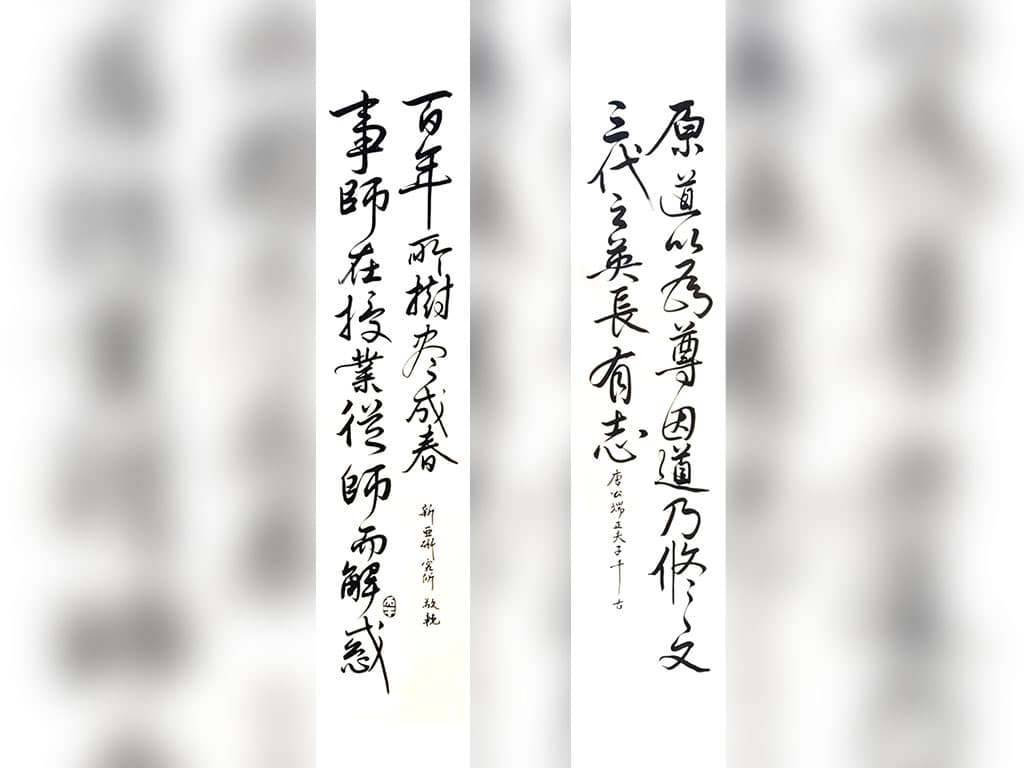 原道以為尊因道乃修文
三代之英長有志
唐公端正夫子千古
事師在授業從師而解惑
百年所樹盡成春
新亞研究所 敬輓